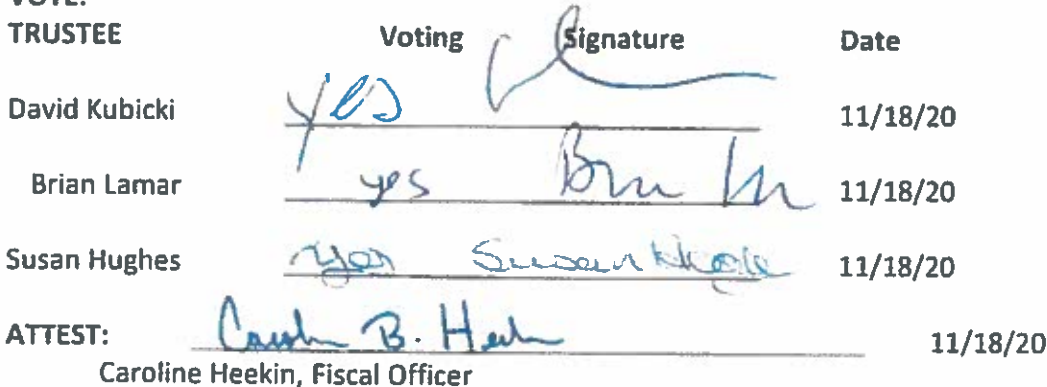 VOTE:
TRUSTEE Voting Signature Date
David Kubicki yes 11/18/20
Brian Lamar yes 11/18/20
Susan Hughes yes Susan Hughes 11/18/20
ATTEST: Caroline B. Heekin 11/18/20
Caroline Heekin, Fiscal Officer